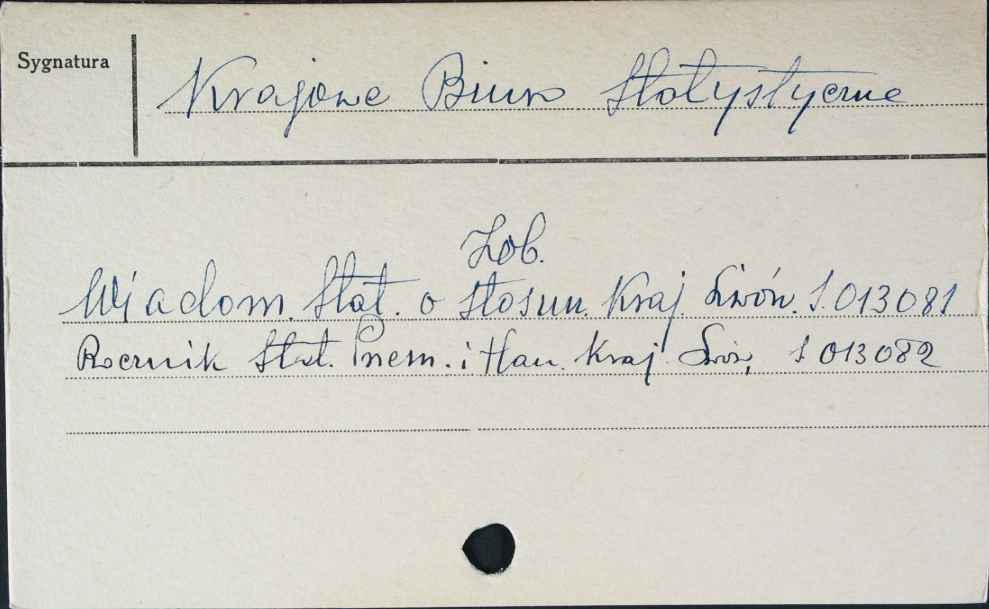 Sygnatura
Krajowe Biuro Statystyczne
Zob.
Wiadom. Stat. o stosun. Kraj Lwów. S.013081
Rocznik Stat. Przem. i Han. Kraj Lwów, S 013082